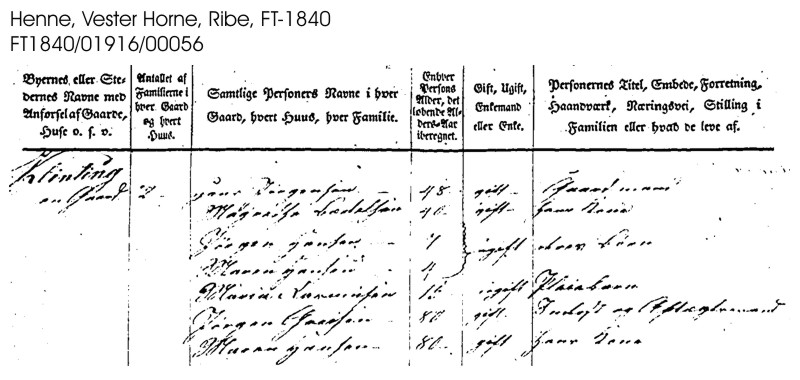 Henne, Vester Horne, Ribe, FT-1840
FT1840/01916/00056
Byernes eller Ste-
dernes Navne med
Anførsel af Gaarde,
Huse o. s. v.
Antallet af
Familierne i
hver Gaard
og hvert
Huus.
Samtlige Personers Navne i hver
Gaard, hvert Huus, hver Familie.
Enhver
Persons
Alder, det
løbende Al-
ders-Aar
iberegnet.
Gift, Ugift,
Enkemand
eller Enke.
Personernes Titel, Embede, Forretning,
Haandværk, Næringsvei, Stilling i
Familien eller hvad de leve af.
Klinting
en Gaard 2 Jens Jørgensen 48 gift Gaardmand
40 gift hans Kone
Jørgen Hansen 7 ugift deres Børn
Maren Hansen 4
Maria ugift Pleiebarn
Jørgen gift og Aftægtsmand
Maren Hansen 80 gift hans Kone